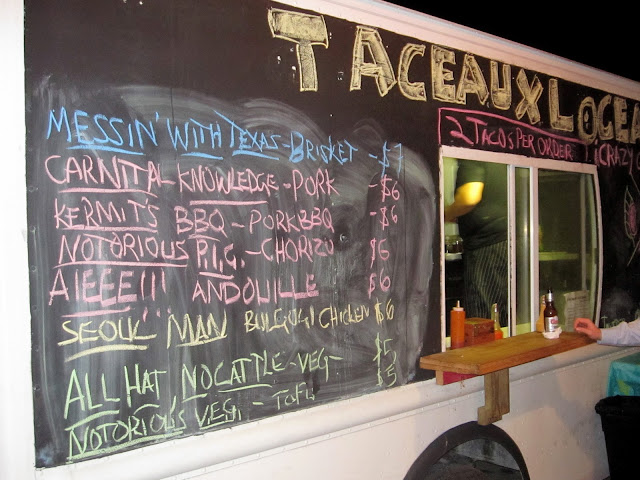 TACEAUX LOCEA
2 TACOS PER ORDER
CRAZY
MESSIN' WITH TEXAS - BRISKET - $7
CARNITAL KNOWLEDGE - PORK - $6
KERMIT'S BBQ - PORK BBQ - $6
NOTORIOUS P.I.G. - CHORIZO $6
AIEEE!!! ANDOUILLE $6
SEOUL MAN BULGOGI CHICKEN $6
ALL HAT NO CATTLE - VEG - $5
NOTORIOUS V.E.G. - TOFU $5